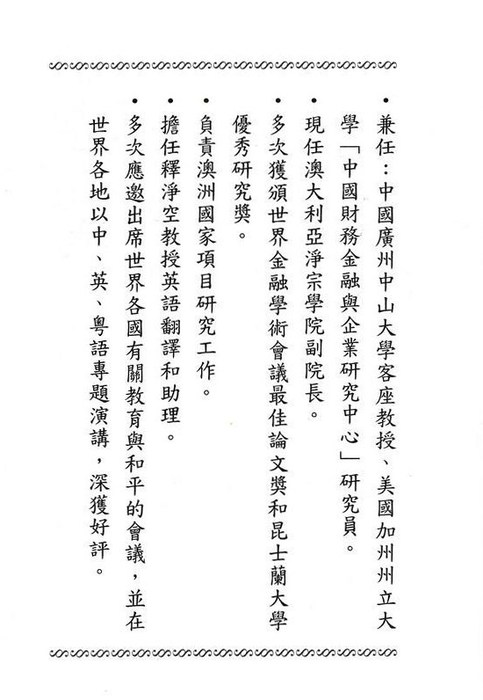 •兼任：中國廣州中山大學客座教授、美國加州州立大
學「中國財務金融與企業研究中心」研究員。
•現任澳大利亞淨宗學院副院長。
•多次獲頒世界金融學術會議最佳論文獎和昆士蘭大學
優秀研究獎。
•負責澳洲國家項目研究工作。
•擔任釋淨空教授英語翻譯和助理。
•多次應邀出席世界各國有關教育與和平的會議，並在
世界各地以中、英、粵語專題演講，深獲好評。